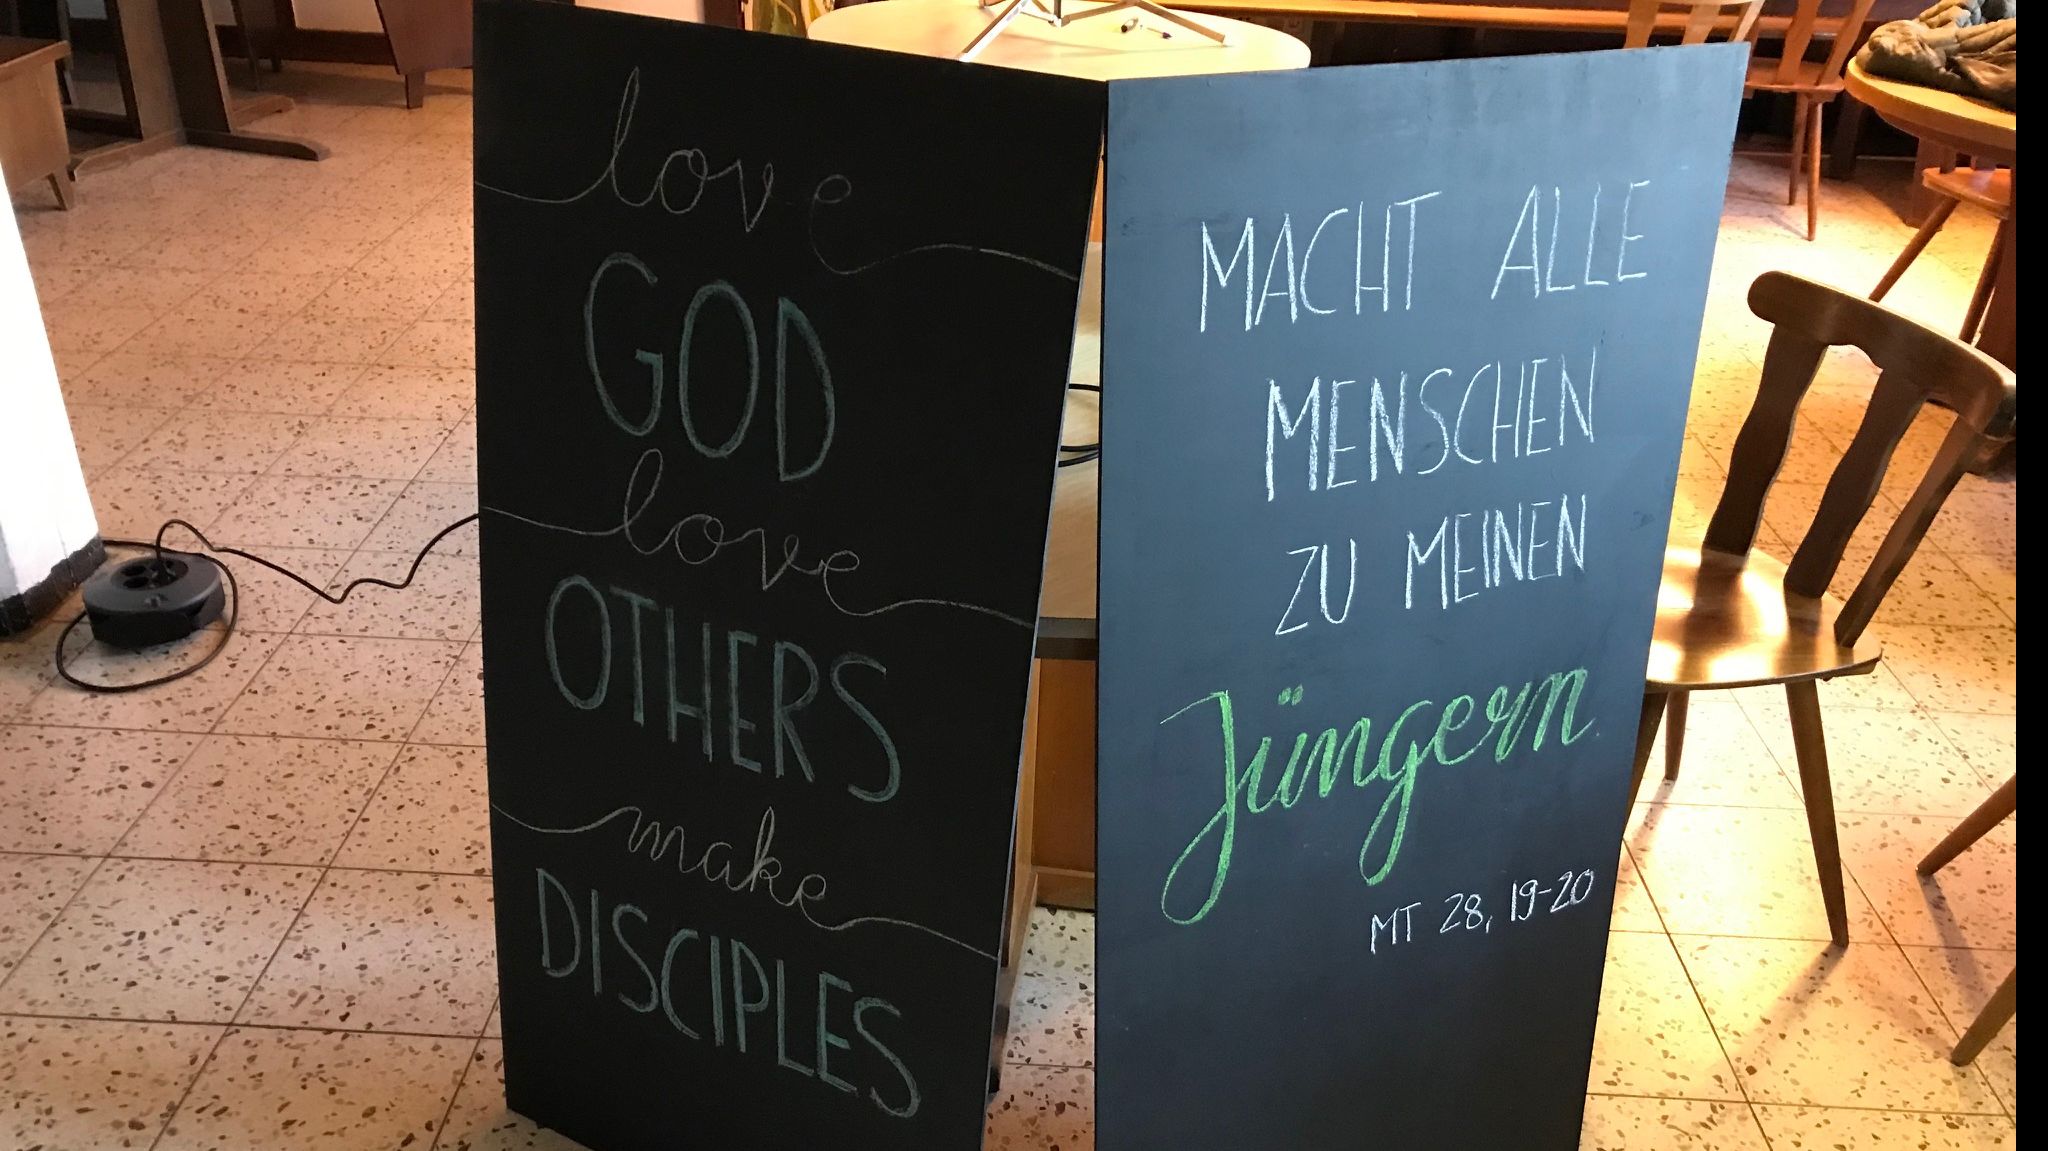 love
GOD
love
OTHERS
make
DISCIPLES
MACHT ALLE
MENSCHEN
ZU MEINEN
Jüngern.
MT 28, 19-20